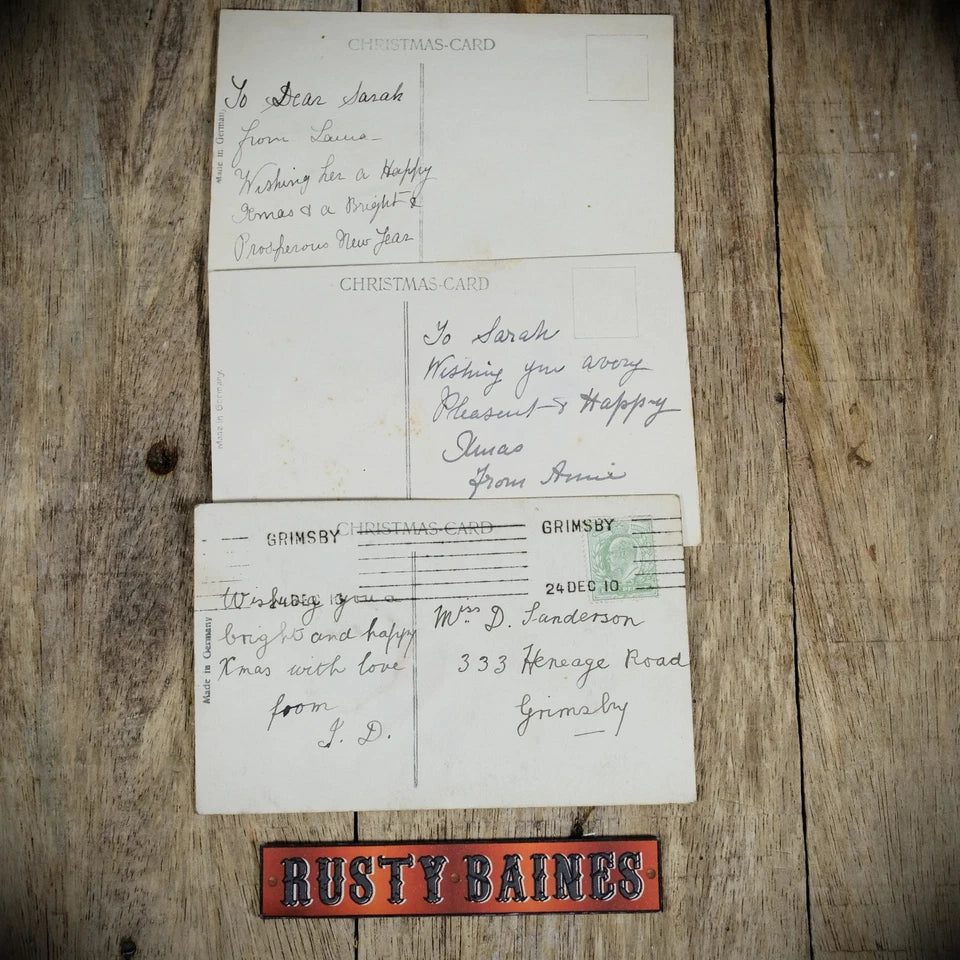 CHRISTMAS-CARD
To Dear Sarah
from Laura
Wishing her a Happy
Xmas & a Bright &
Prosperous New Year
Made in Germany
CHRISTMAS-CARD
To Sarah
Wishing you avery
Pleasent & Happy
Xmas
From Annie
Made in Germany
CHRISTMAS-CARD
GRIMSBY
24 DEC 10
GRIMSBY
24 DEC 10
Wishing you a
bright and happy
Xmas with love
from
J. D.
Made in Germany
Miss D. Sanderson
333 Heneage Road
Grimsby
RUSTY BAINES